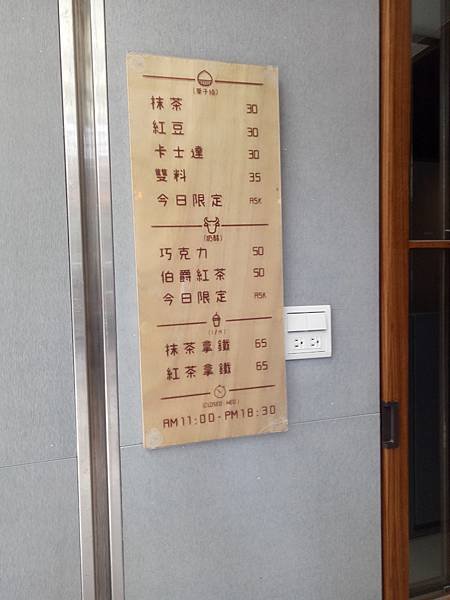 (栗子燒)
抹茶 30
紅豆 30
卡士達 30
雙料 35
今日限定 ASK
(奶酥)
巧克力 50
伯爵紅茶 50
今日限定 ASK
抹茶拿鐵 65
紅茶拿鐵 65
(CLOSED WED)
AM11:00-PM18:30